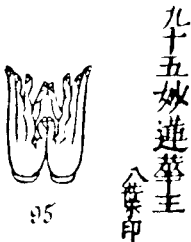 九十五妙蓮華王
八葉印
95